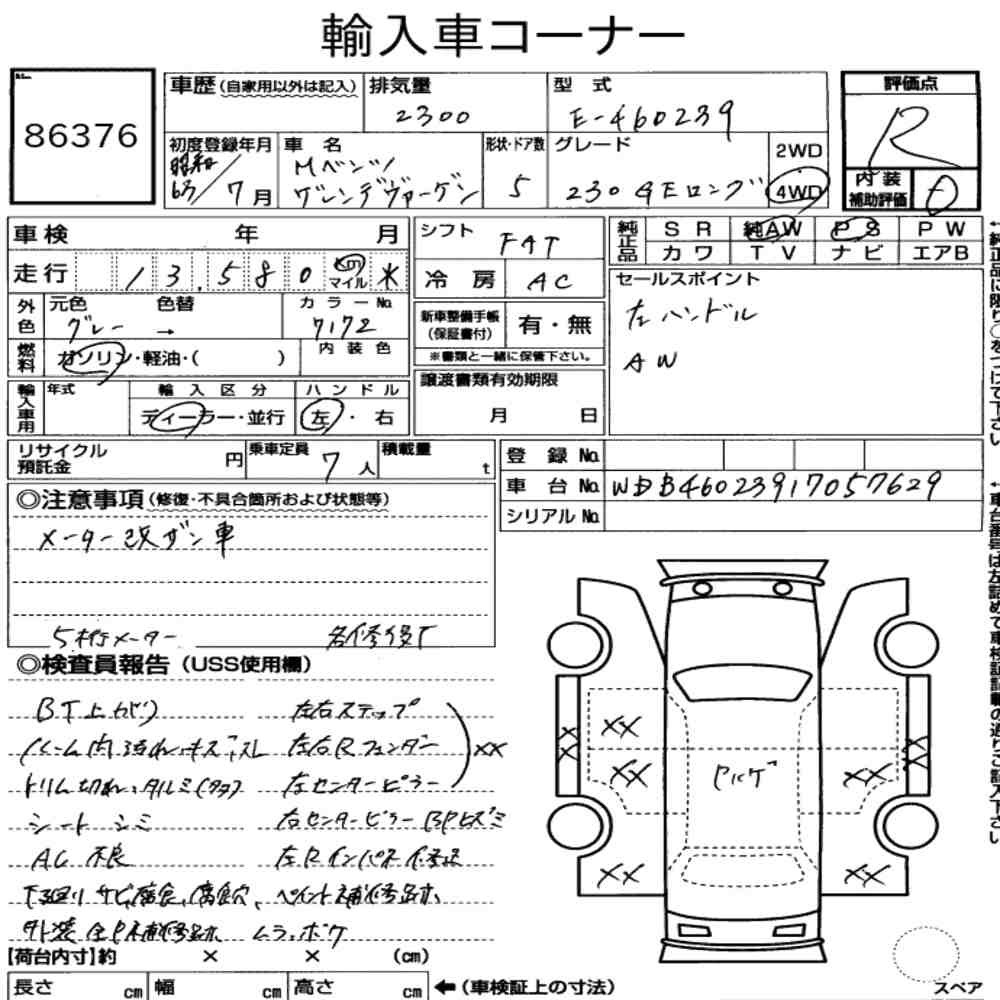 輸入車コーナー
86376
車歴 (自家用以外は記入) 排気量 型式
2300 E-460239
評価点
R
初度登録年月 車名 形状・ドア数 グレード
昭和63/7月 Mベンツ ゲレンデヴァーゲン 5 230GEロング 2WD 4WD
内装補助評価 D
車検 年 月
シフト FAT
純正品 SR 純AW PS PW
カワ TV ナビ エアB
走行 13,580 km マイル ※
冷房 AC
セールスポイント
左ハンドル
AW
外色 元色 色替 カラーNo
グレー → 7172
新車整備手帳(保証書付) 有・無
※書類と一緒に保管下さい。
燃料 ガソリン・軽油・( ) 内装色
譲渡書類有効期限
月 日
輸入車用 年式 輸入区分 ハンドル
ディーラー・並行 左・右
リサイクル預託金 円 乗車定員 7人 積載量 t
登録No.
車台No. WDB46023917057629
シリアルNo.
◎注意事項 (修復・不具合箇所および状態等)
メーター改ザン車
5桁メーター
◎検査員報告 (USS使用欄)
BT上ガリ 左右ステップ
ルーム内汚れ、キズ、スレ 左右Rフェンダー XX
トリム切れ、タルミ(タタ) 左センターピラー
シートシミ 右センターピラーBPヒズミ
AC不良 左Rインパネ修正
下廻りサビ、腐食、腐食穴、ペイント補修跡有、
外装全P補修跡有、ムラ、ボケ
XX
XX
XX
XX
XX
XX
XX
Pハゲ
【荷台内寸】約 × × (cm)
長さ cm 幅 cm 高さ cm ←(車検証上の寸法)
スペア
←純正品に限り○をつけて下さい
←車台番号は左詰めで車検証記載の通りご記入下さい